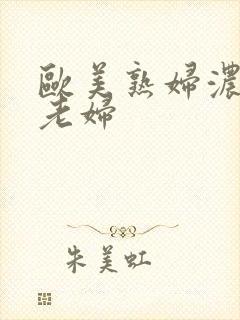 歐美熟婦濃
老婦
朱美虹